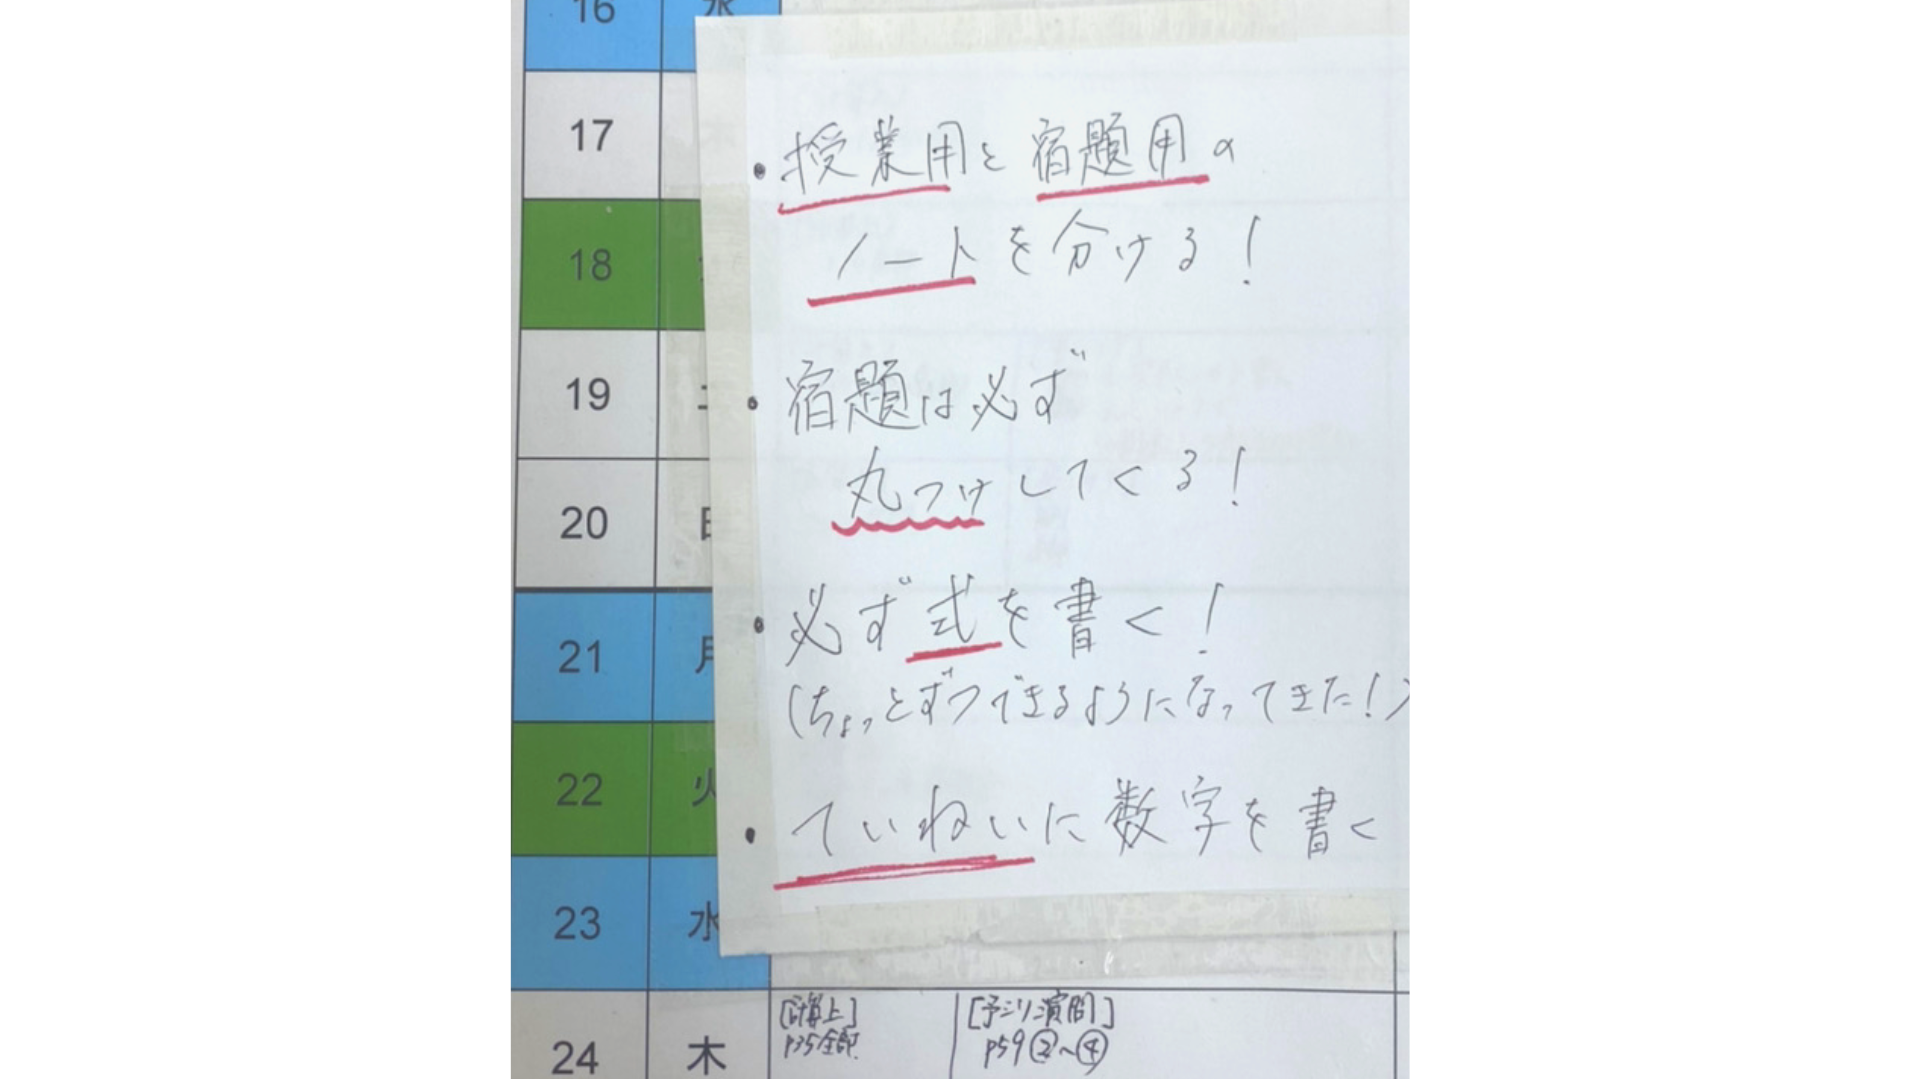 16 水
17 木
18
19 土
20 日
21 月
22 火
23 水
24 木
・授業用と宿題用の
ノートを分ける!
・宿題は必ず
丸つけしてくる!
・必ず式を書く!
(ちょっとずつできるようになってきた!)
・ていねいに数字を書く
[計算上]
P35全部
[予シリ演問]
P59②~④